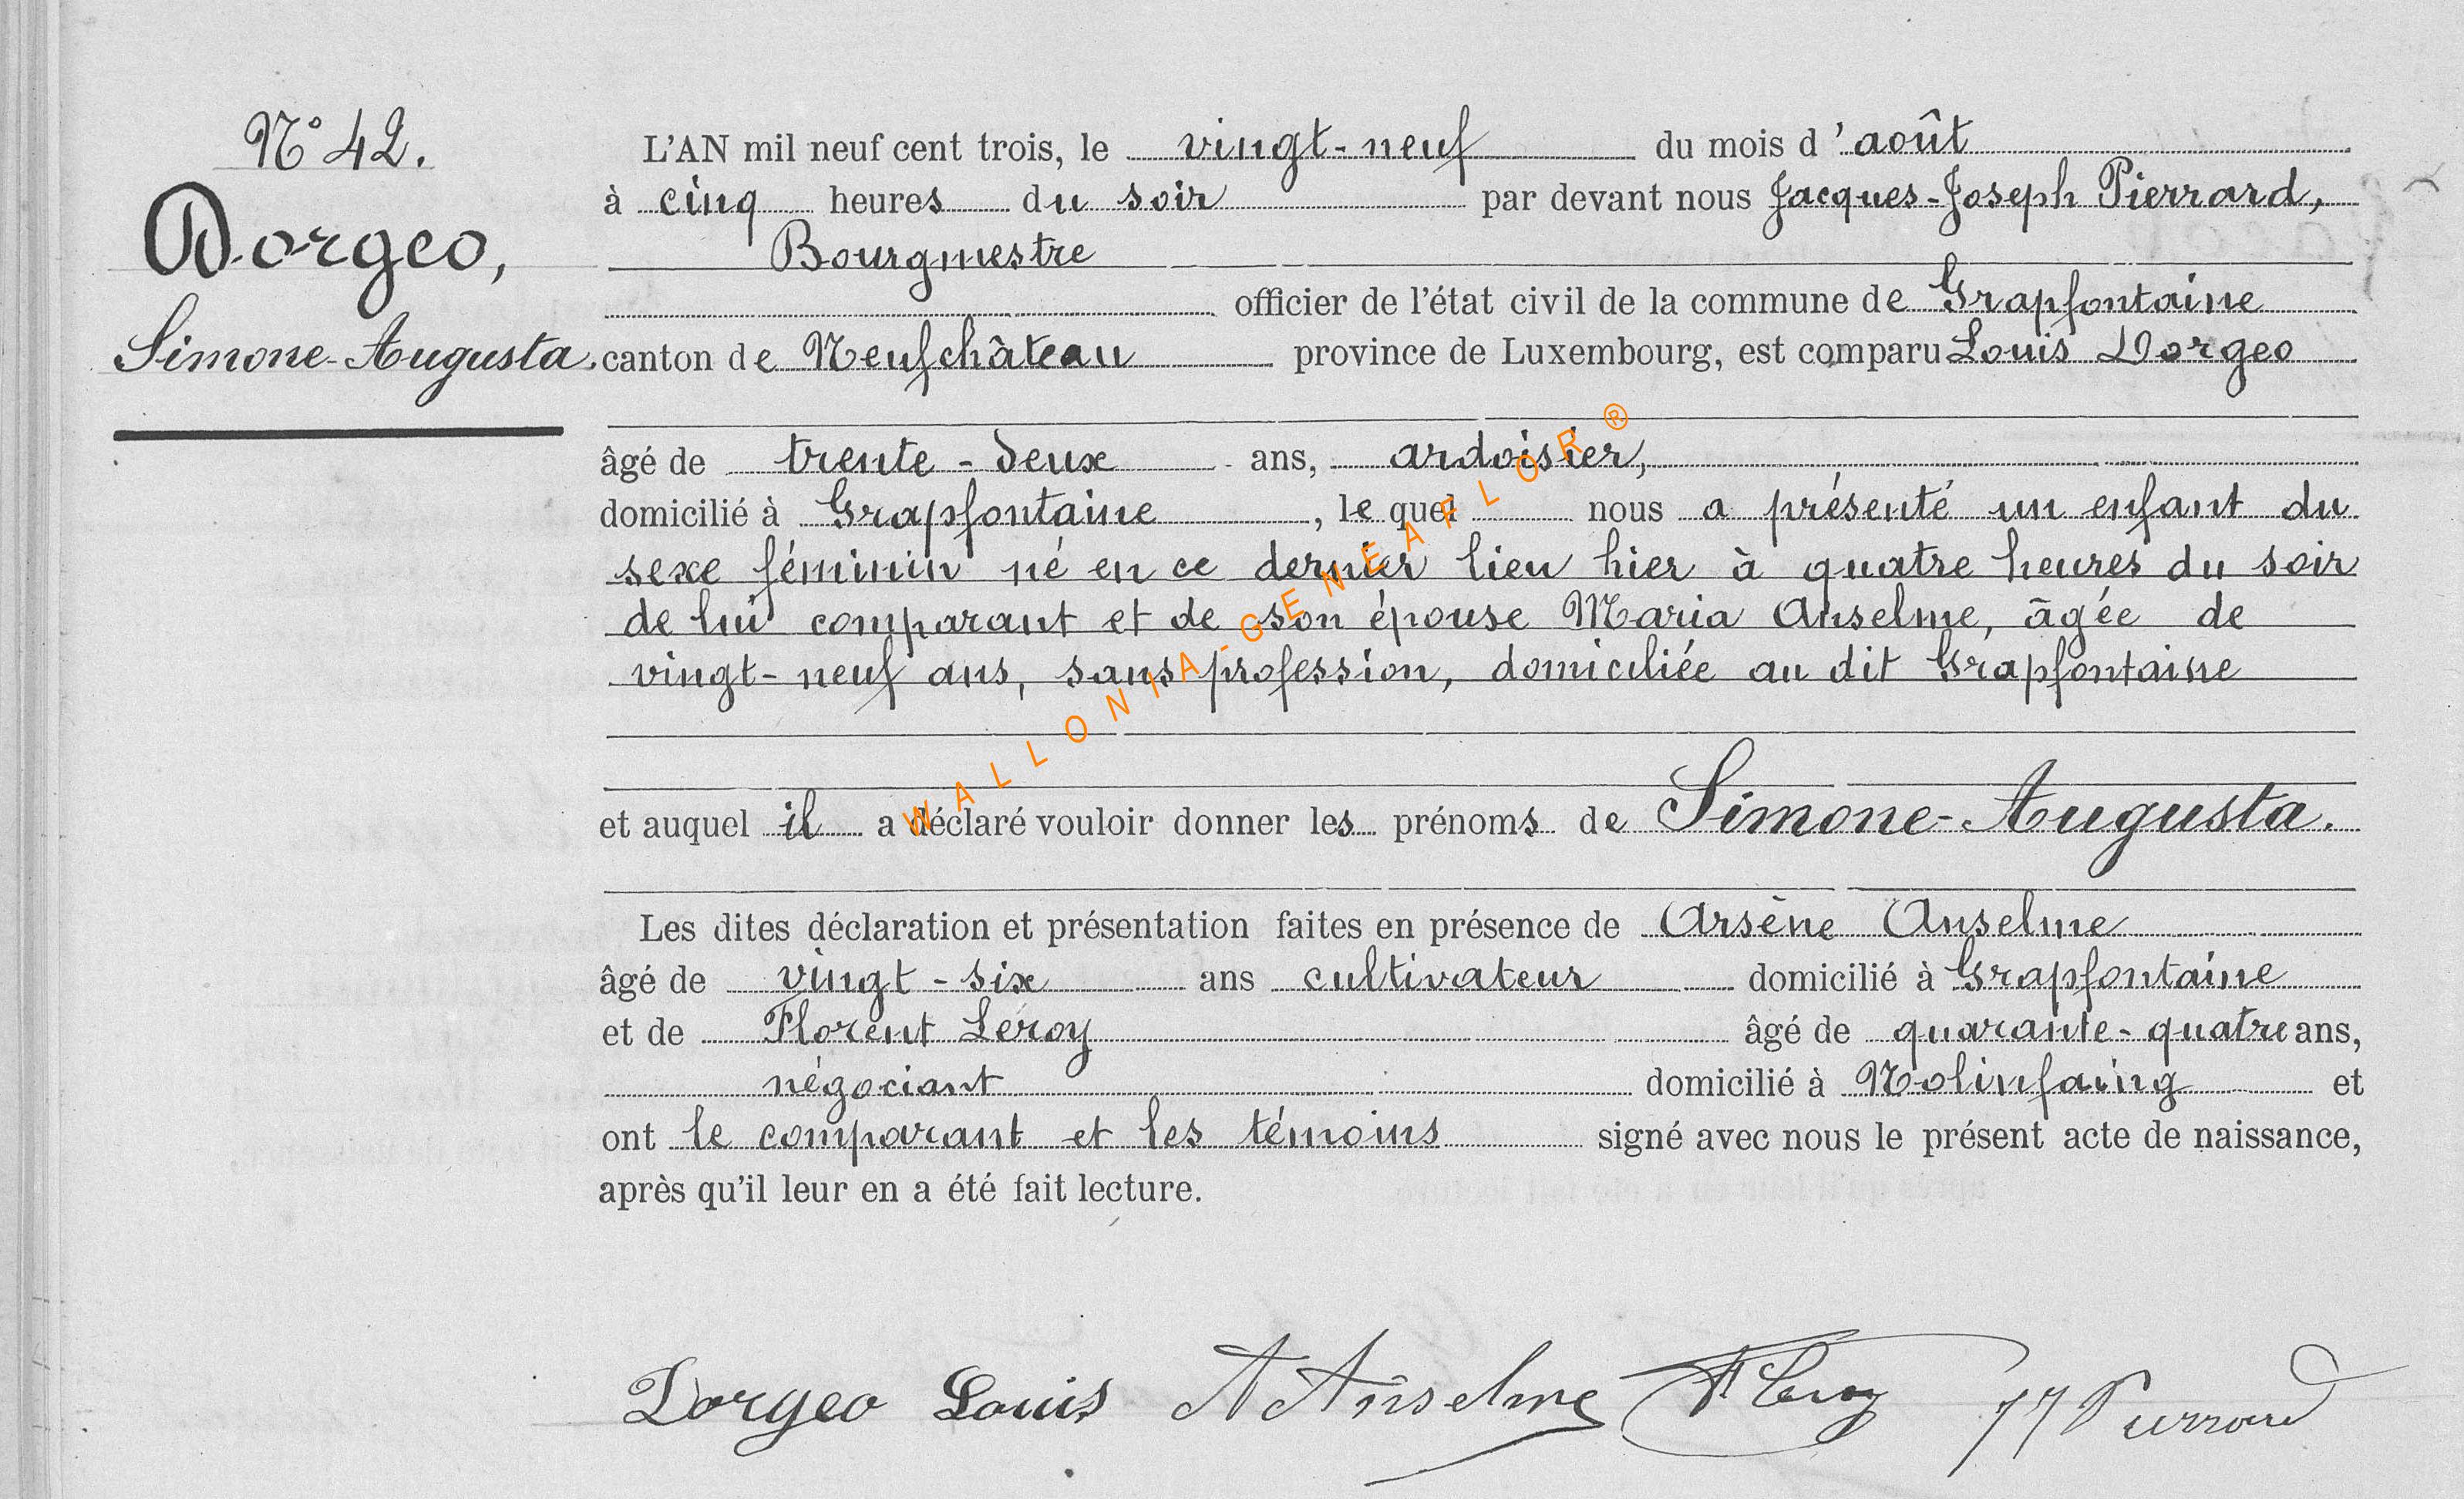 N° 42.
Dorgeo,
Simone-Augusta.
L'AN mil neuf cent trois, le vingt-neuf du mois d'août
à cinq heures du soir par devant nous Jacques-Joseph Pierrard,
Bourgmestre
officier de l'état civil de la commune de Grapfontaine
canton de Neufchâteau province de Luxembourg, est comparu Louis Dorgeo
âgé de trente-deux ans, ardoisier,
domicilié à Grapfontaine, lequel nous a présenté un enfant du
sexe féminin né en ce dernier lieu hier à quatre heures du soir
de lui comparant et de son épouse Maria Anselme, âgée de
vingt-neuf ans, sans profession, domiciliée au dit Grapfontaine
et auquel il a déclaré vouloir donner les prénoms de Simone-Augusta.
Les dites déclaration et présentation faites en présence de Arsène Anselme
âgé de vingt-six ans cultivateur domicilié à Grapfontaine
et de Florent Leroy âgé de quarante-quatre ans,
négociant domicilié à Nolinfaing et
ont le comparant et les témoins signé avec nous le présent acte de naissance,
après qu'il leur en a été fait lecture.
Dorgeo Louis A Anselme F Leroy JJ Pierrard
WALLONIA-GENEAFLOR ®